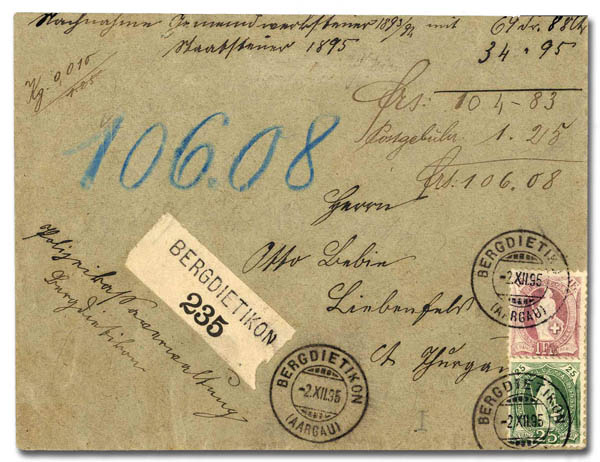 Nachnahme Gemeindewerksteuer 1893/94 mit 69 fr. 88
Staatssteuer 1895 34 · 95
Kg. 0,015
frs: 104-83
Postgebühr 1. 25
frs: 106.08
106.08
Herrn
Otto Bebie
Liebenfels
Ct. Thurgau
Polizeikassaverwaltung
Bergdietikon
BERGDIETIKON
235
BERGDIETIKON
-2.XII.95
(AARGAU)
BERGDIETIKON
-2.XII.95
(AARGAU)
1 FR.
BERGDIETIKON
-2.XII.95
25
25